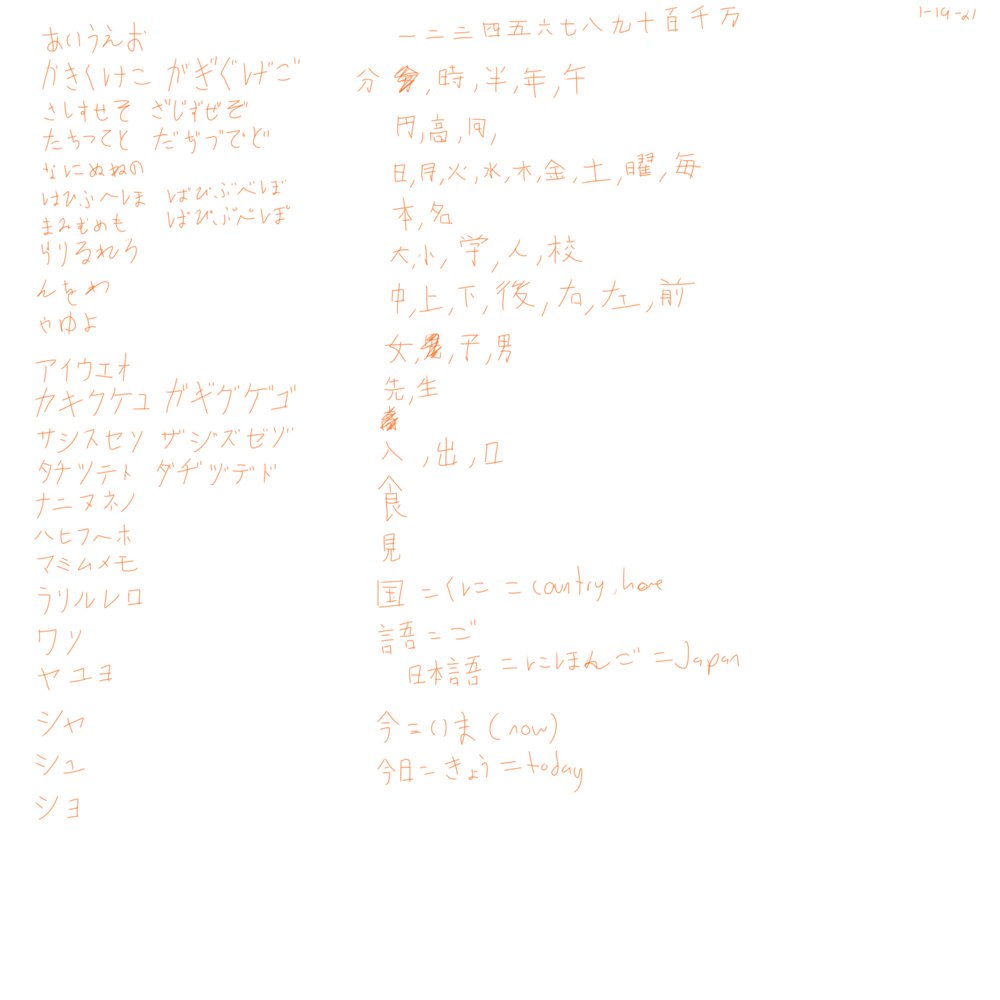 1-19-21
あいうえお
かきくけこ がぎぐげご
さしすせそ ざじずぜぞ
たちつてと だぢづでど
なにぬねの
はひふへほ ばびぶべぼ
まみむめも ぱぴぷぺぽ
らりるれろ
んをわ
やゆよ
アイウエオ
カキクケコ ガギグゲゴ
サシスセソ ザジズゼゾ
タチツテト ダヂヅデド
ナニヌネノ
ハヒフヘホ
マミムメモ
ラリルレロ
ワン
ヤユヨ
シャ
シュ
ショ
一二三四五六七八九十百千万
分,時,半,年,午
円,高,同,
日,月,火,水,木,金,土,曜,毎
本,名
大,小,学,人,校
中,上,下,後,右,左,前
女,子,男
先,生
入,出,口
食
見
国=くに=country, home
語=ご
日本語=にほんご=Japan
今=いま(now)
今日=きょう=today